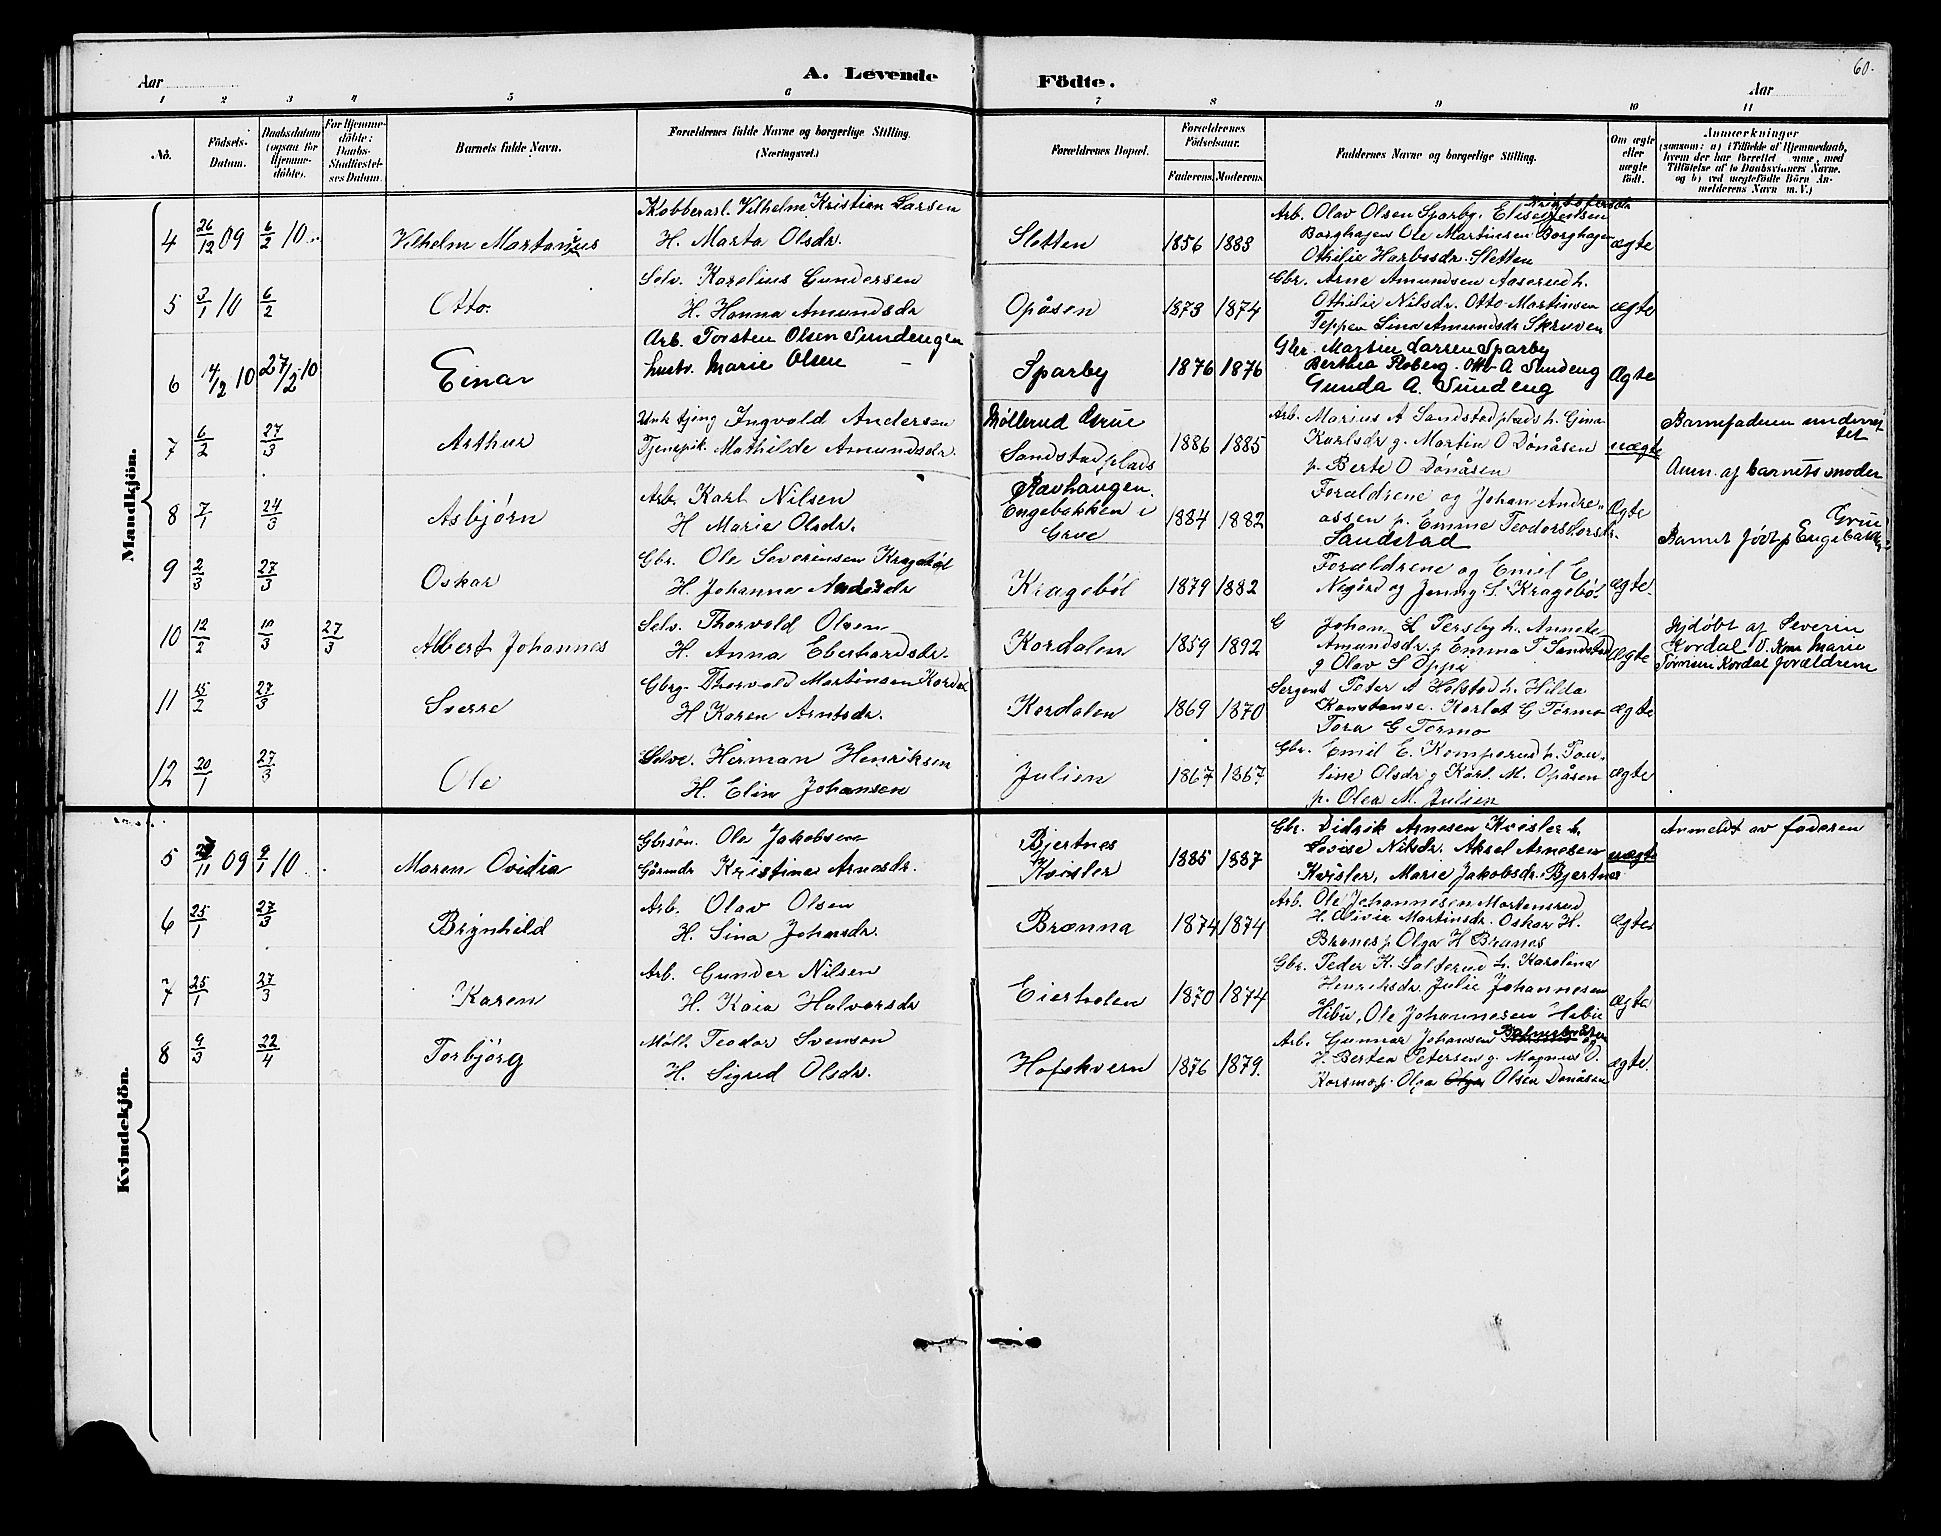 60.
Aar
A. Levende Födte.
Aar
1 2 3 4 5 6 7 8 9 10 11
No.
Födsels-Datum.
Daabsdatum (ogsaa for Hjemmedöbte).
For Hjemmedöbte: Daabs-Stadfæstelses Datum.
Barnets fulde Navn.
Forældrenes fulde Navne og borgerlige Stilling. (Næringsvei.)
Forældrenes Bopæl.
Forældrenes Födselsaar.
Faderens. Moderens.
Faddernes Navne og borgerlige Stilling.
Om ægte eller uægte födt.
Anmærkninger (saasom: a) i Tilfælde af Hjemmedaab, hvem der har forrettet samme, med Tilföielse af to Daabsvidners Navne. og b) ved uægtefödte Börn Anmelderens Navn m. V.)
Mandkjön.
4 26/12 09 6/2 10 Vilhelm Martinius
Kobberarb. Vilhelm Kristian Larsen
H. Marta Olsdr.
Sletten 1856 1883
Arb. Olav Olsen Sparby. Elise
Borghagen Ole Martinsen Borghagen
Othilie Harbosdr. Sletten
ægte
5 3/1 10 6/2 Otto.
Selv. Karelius Gundersen
H. Hanna Amundsdr
Opåsen 1873 1874
Gbr. Arne Amundsen Aaserud h.
Othilie Nilsdr. Otto Martinsen
Teppen Sina Amundsdr Skruven
ægte
6 14/2 10 27/2 10 Einar
Arb. Torsten Olsen Sundengen
hustr. Marie Olsen
Sparby 1876 1876
Gbr. Martin Larsen Sparby
Berthea Floberg. Otto A Sundeng
Gunda A. Sundeng
Ægte
7 6/2 27/3 Arthur
Unk tjeng Ingvald Andersen
Tjenspik. Mathilde Amundsdr.
Møllerud Grue
Sandstadplads
1886 1885
Arb. Marius A Sandstadplads h. Gina
Karlsdr g. Martin O Dönåsen
p. Berte O Dönåsen
uægte
Barnefaderen underrettet
Anm. af barnets moder
8 7/1 24/3 Asbjörn
Arb. Karl Nilsen
H Marie Olsdr.
Ravhaugen.
Engebakken i
Grue
1884 1882
Forældrene og Johan Andreassen p. Emma Teodorsdr
Sandstad
Ægte
Barnet född p Engebakken Grue
9 2/3 27/3 Oskar
Gbr. Ole Severinsen Kragebøl
H. Johanne Andersdr
Kragebøl 1879 1882
Forældrene og Emil E
Negård og Jenny S. Kragebøl
ægte.
10 12/2 13/3 27/3 Albert Johannes
Selv. Thorvald Olsen
H. Anna Eberhardsdr.
Kordalen 1859 1892
G Johan L Persby h. Annete
Amundsdr. p Emma T Sandstad
g Olav S Oppi
Ægte
Hjdöbt af Severin
Kordal V. Kone Marie
Tørmoen Kordal forældrene
11 15/2 27/3 Sverre
Gbrg. Thorvald Martinsen Kordal
H Karen Arntsdr.
Kordalen 1869 1870
Sergent Peter A Holstad h. Hilda
Konstanse. Karlot G Tørmo
Tora G Tørmo
ægte
12 20/1 27/3 Ole
Selve. Herman Henriksen
H. Elin Johansen
Julien 1867 1867
Gbr. Emil E. Komperud h. Pauline Olsdr g Karl M. Opåsen
p. Olea M. Julien
ægte
Kvindekjön.
5 27/11 09 9/1 10 Maren Ovidia
Gbrsön. Ole Jakobsen
Gårmdr Kristine Arnesdr.
Bjertnes
Kvisler
1885 1887
Gbr. Didrik Arnesen Kvisler h.
Lovise Nilsdr. Aksel Arnesen
Kvisler, Marie Jakobsdr. Bjertnes
uægte
Anmeldt av faderen
6 25/1 27/3 Brynhild
Arb. Olav Olsen
H. Sina Johnsdr.
Brænna 1874 1874
Arb. Ole Johannesen Mortensrud
H. Olivie Martinsdr. Oskar H.
Branes p Olga H Branes
Ægte
7 25/1 27/3 Karen
Arb. Gunder Nilsen
H. Kaia Halvorsdr
Eierholen 1870 1874
Gbr. Peder K. Salterud h. Karolina
Henriksdr. Julie Johannesen
Hibu, Ole Johannesen Hibu
Ægte
8 9/3 22/4 Torbjörg
Möll. Teodor Svenson
H. Sigrid Olsdr.
Hofskvern 1876 1879.
Arb. Gunnar Johansen
H. Bertea Petersen g. Magnus O.
Korsmo p. Olga Olsen Donåsen
ægte.